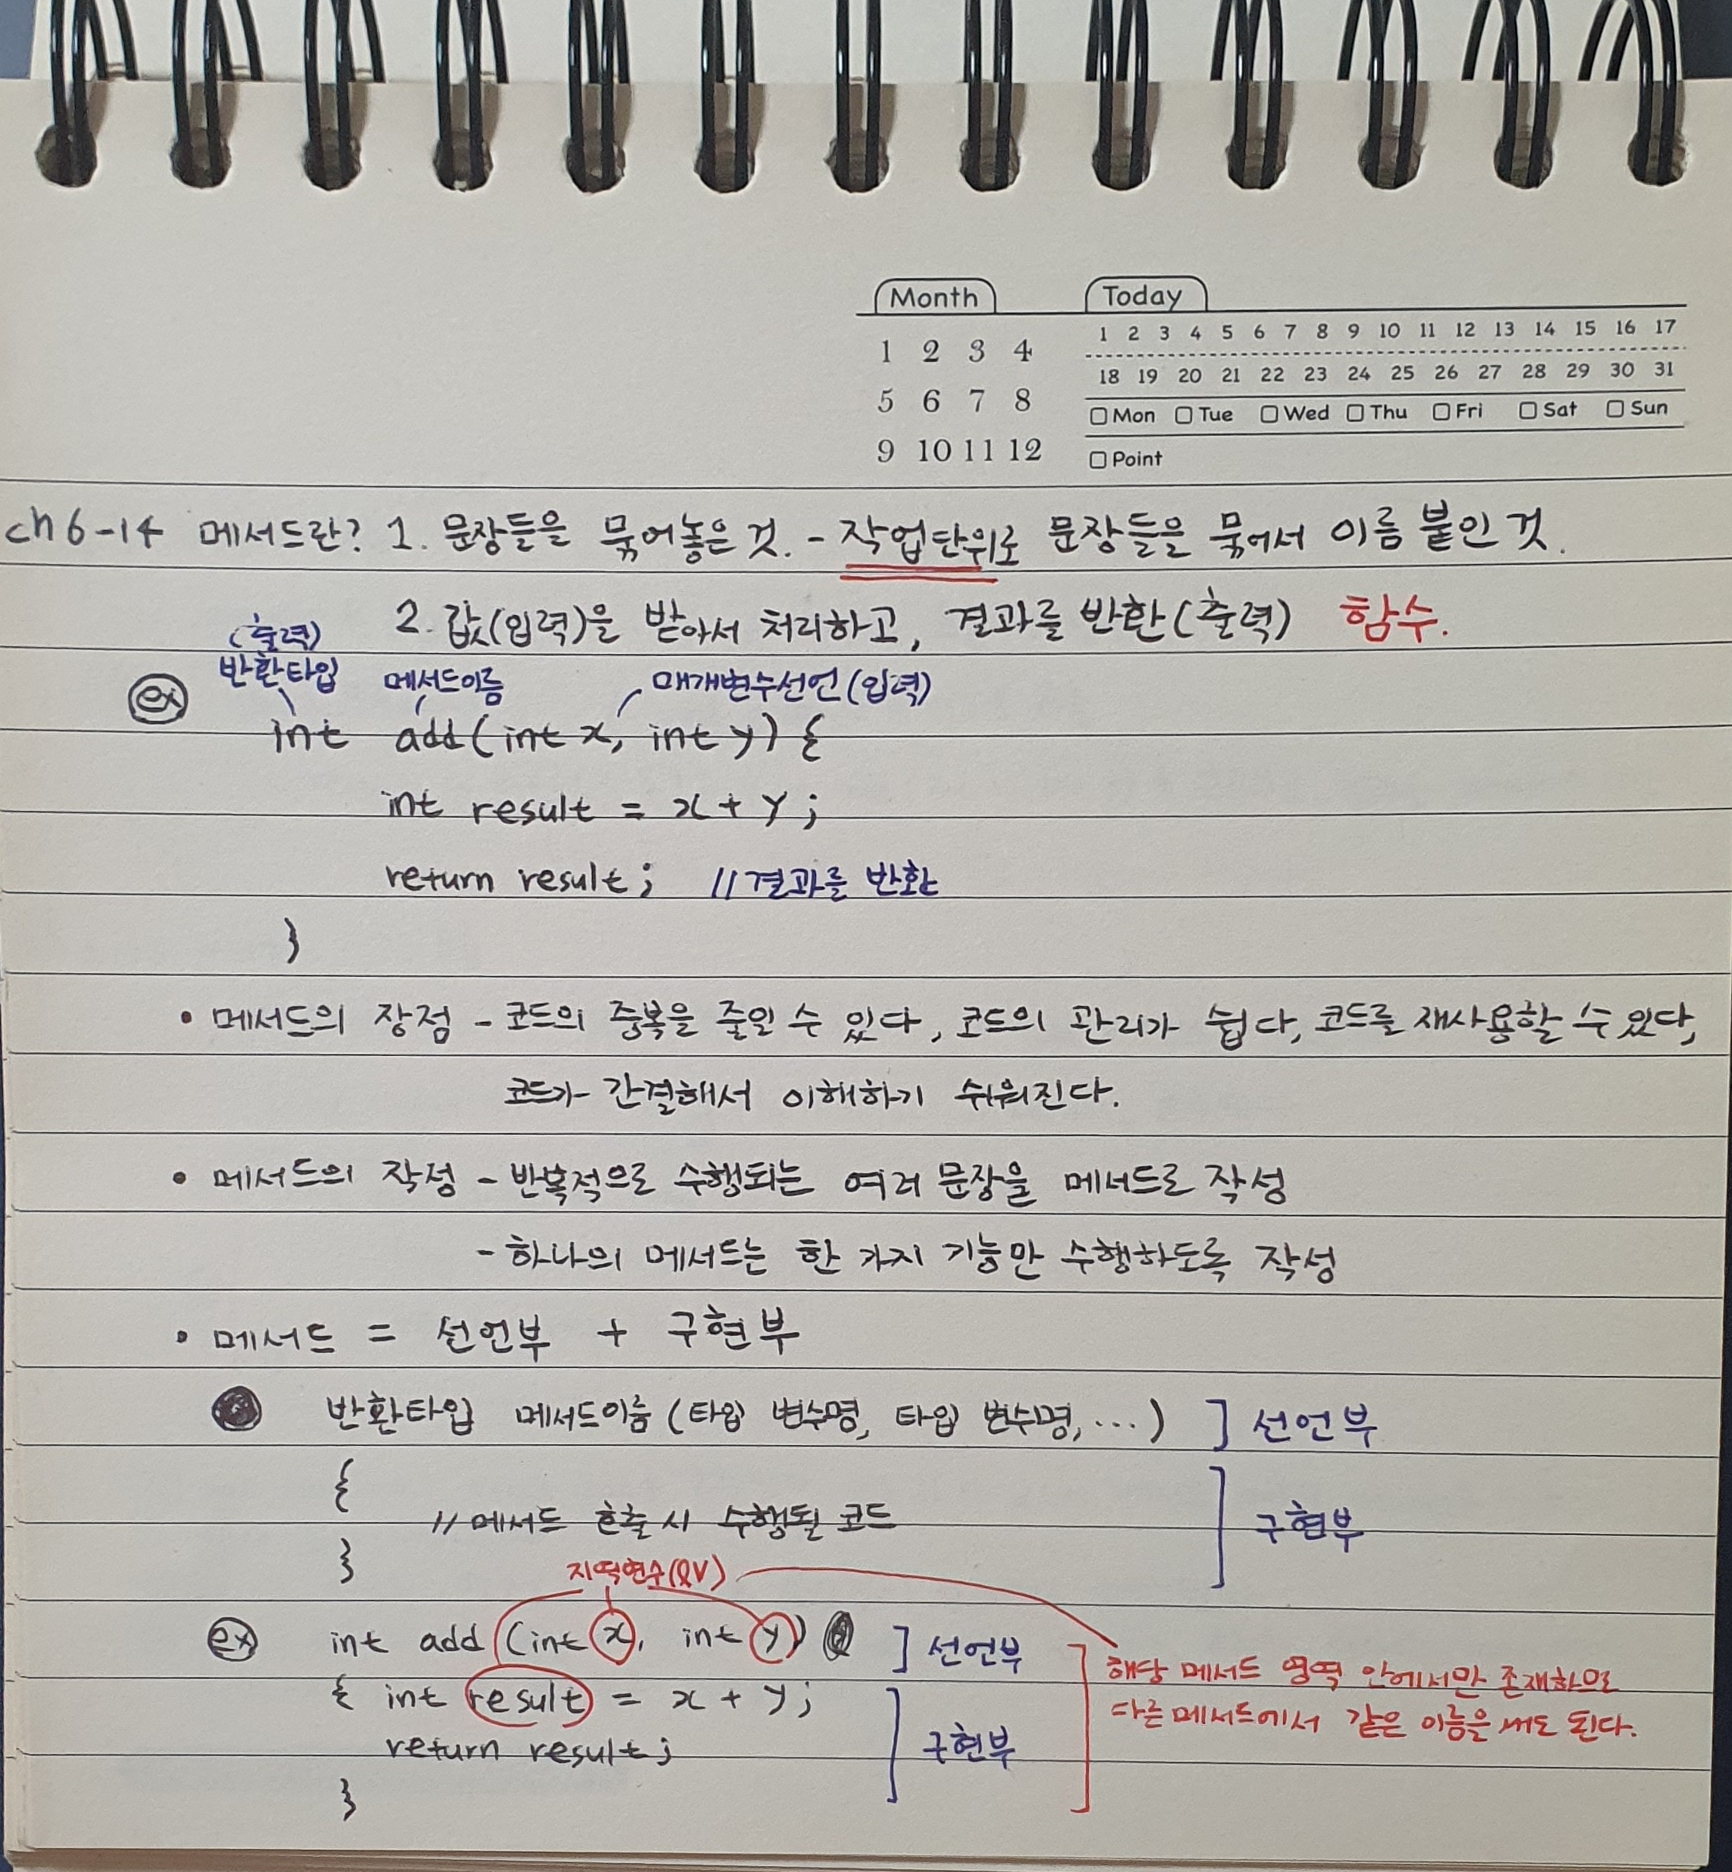 Month Today
1 2 3 4 5 6 7 8 9 10 11 12 13 14 15 16 17
1 2 3 4
18 19 20 21 22 23 24 25 26 27 28 29 30 31
5 6 7 8
Mon Tue Wed Thu Fri Sat Sun
9 10 11 12
Point
ch 6-14 메서드란? 1. 문장들을 묶어놓은 것. - 작업단위로 문장들을 묶어서 이름 붙인 것.
2. 값(입력)을 받아서 처리하고, 결과를 반환(출력) 함수.
(출력)
반환타입 메서드이름 매개변수선언(입력)
ex
int add(int x, int y) {
int result = x + y;
return result; //결과를 반환
}
• 메서드의 장점 - 코드의 중복을 줄일 수 있다, 코드의 관리가 쉽다, 코드를 재사용할 수 있다,
코드가 간결해서 이해하기 쉬워진다.
• 메서드의 작성 - 반복적으로 수행되는 여러 문장을 메서드로 작성
- 하나의 메서드는 한 가지 기능만 수행하도록 작성
• 메서드 = 선언부 + 구현부
반환타입 메서드이름 (타입 변수명, 타입 변수명, ...) ] 선언부
{
// 메서드 호출 시 수행될 코드 구현부
}
지역변수(lv)
ex int add (int x, int y) ] 선언부
해당 메서드 영역 안에서만 존재하므로
{ int result = x + y;
다른 메서드에서 같은 이름을 써도 된다.
return result; 구현부
}